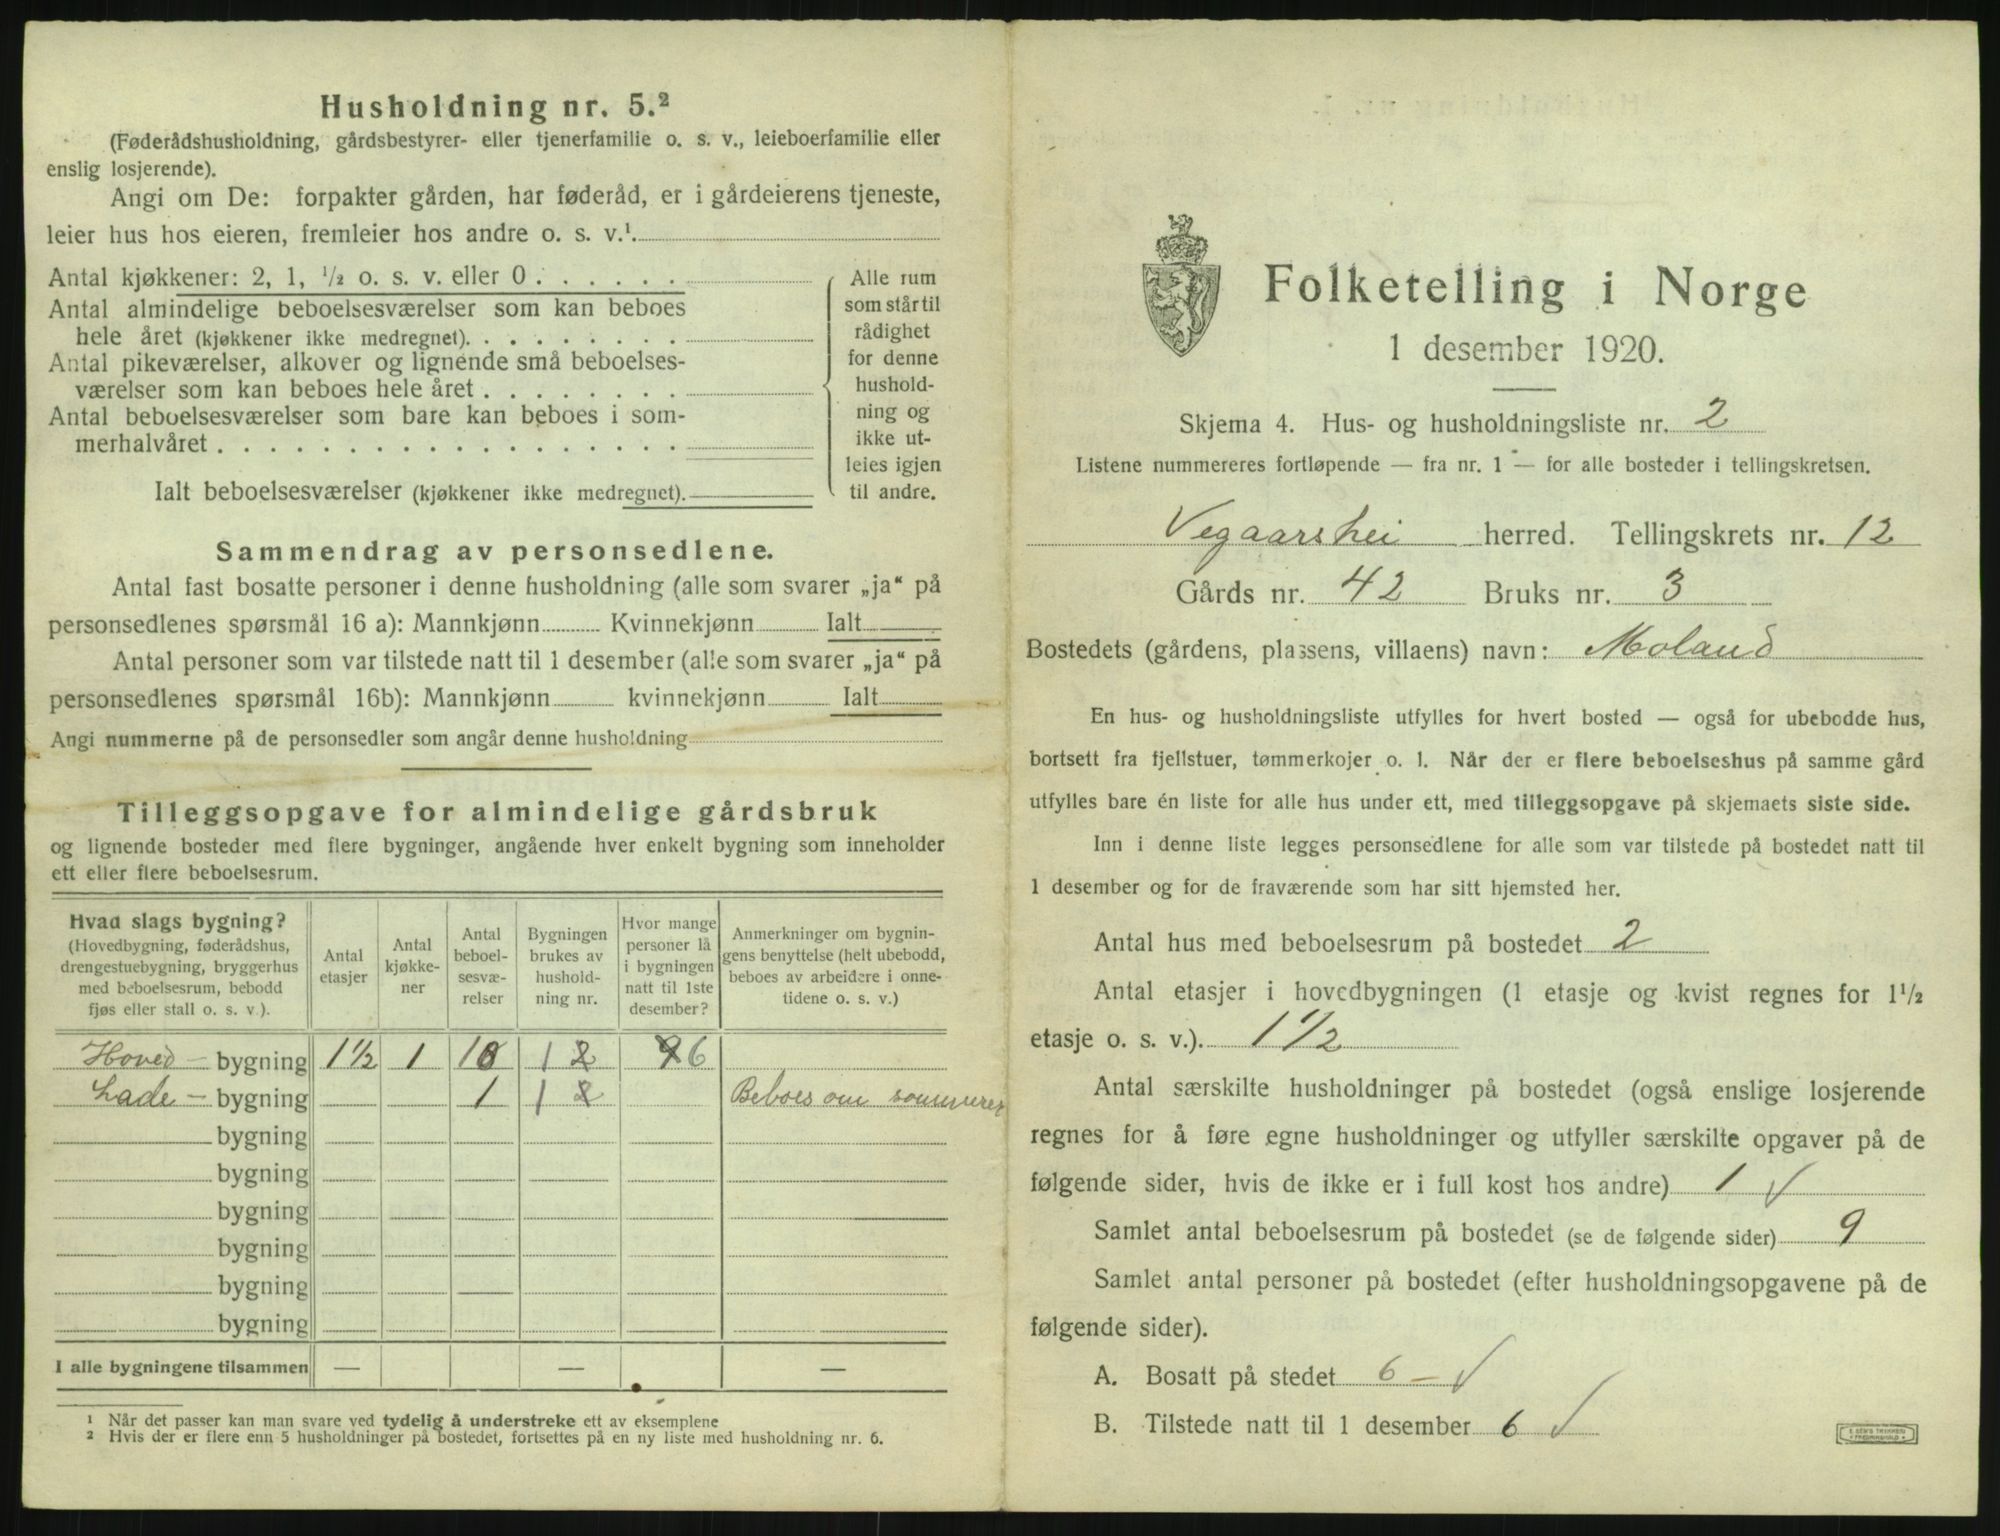 Husholdning nr. 5.²
(Føderådshusholdning, gårdsbestyrer- eller tjenerfamilie o. s. v., leieboerfamilie eller
enslig losjerende).
Angi om De: forpakter gården, har føderåd, er i gårdeierens tjeneste,
leier hus hos eieren, fremleier hos andre o. s. v.¹
Antal kjøkkener: 2, 1, ½ o. s. v. eller 0 . . . . . .
Antal almindelige beboelsesværelser som kan beboes
hele året (kjøkkener ikke medregnet). . . . . . . . .
Antal pikeværelser, alkover og lignende små beboelses-
værelser som kan beboes hele året . . . . . . . .
Antal beboelsesværelser som bare kan beboes i som-
merhalvåret . . . . . . . . . . . . . . . . . .
Ialt beboelsesværelser (kjøkkener ikke medregnet).
Alle rum
som står til
rådighet
for denne
hushold-
ning og
ikke ut-
leies igjen
til andre.
Sammendrag av personsedlene.
Antal fast bosatte personer i denne husholdning (alle som svarer „ja“ på
personsedlenes spørsmål 16 a): Mannkjønn Kvinnekjønn Ialt
Antal personer som var tilstede natt til 1 desember (alle som svarer „ja“ på
personsedlenes spørsmål 16b): Mannkjønn kvinnekjønn Ialt
Angi nummerne på de personsedler som angår denne husholdning
Tilleggsopgave for almindelige gårdsbruk
og lignende bosteder med flere bygninger, angående hver enkelt bygning som inneholder
ett eller flere beboelsesrum.
Hvad slags bygning?
(Hovedbygning, føderådshus,
drengestuebygning, bryggerhus
med beboelsesrum, bebodd
fjøs eller stall o. s. v.).
Antal
etasjer
Antal
kjøkke-
ner
Antal
beboel-
sesvæ-
relser
Bygningen
brukes av
hushold-
ning nr.
Hvor mange
personer lå
i bygningen
natt til 1ste
desember?
Anmerkninger om bygnin-
gens benyttelse (helt ubebodd,
beboes av arbeidere i onne-
tidene o. s. v.)
Hoved- bygning 1½ 1 1 2 6
Lade- bygning 1 1 2 Beboes om sommeren
bygning
bygning
bygning
bygning
bygning
bygning
I alle bygningene tilsammen — — —
¹ Når det passer kan man svare ved tydelig å understreke ett av eksemplene
² Hvis der er flere enn 5 husholdninger på bostedet, fortsettes på en ny liste med husholdning nr. 6.
Folketelling i Norge
1 desember 1920.
Skjema 4. Hus- og husholdningsliste nr. 2
Listene nummereres fortløpende — fra nr. 1 — for alle bosteder i tellingskretsen.
Vegaarshei herred. Tellingskrets nr. 12
Gårds nr. 42 Bruks nr. 3
Bostedets (gårdens, plassens, villaens) navn: Moland
En hus- og husholdningsliste utfylles for hvert bosted — også for ubebodde hus,
bortsett fra fjellstuer, tømmerkojer o. l. Når der er flere beboelseshus på samme gård
utfylles bare én liste for alle hus under ett, med tilleggsopgave på skjemaets siste side.
Inn i denne liste legges personsedlene for alle som var tilstede på bostedet natt til
1 desember og for de fraværende som har sitt hjemsted her.
Antal hus med beboelsesrum på bostedet 2
Antal etasjer i hovedbygningen (1 etasje og kvist regnes for 1½
etasje o. s. v.). 1½
Antal særskilte husholdninger på bostedet (også enslige losjerende
regnes for å føre egne husholdninger og utfyller særskilte opgaver på de
følgende sider, hvis de ikke er i full kost hos andre) 1 √
Samlet antal beboelsesrum på bostedet (se de følgende sider) 9
Samlet antal personer på bostedet (efter husholdningsopgavene på de
følgende sider).
A. Bosatt på stedet 6 – √
B. Tilstede natt til 1 desember 6 √